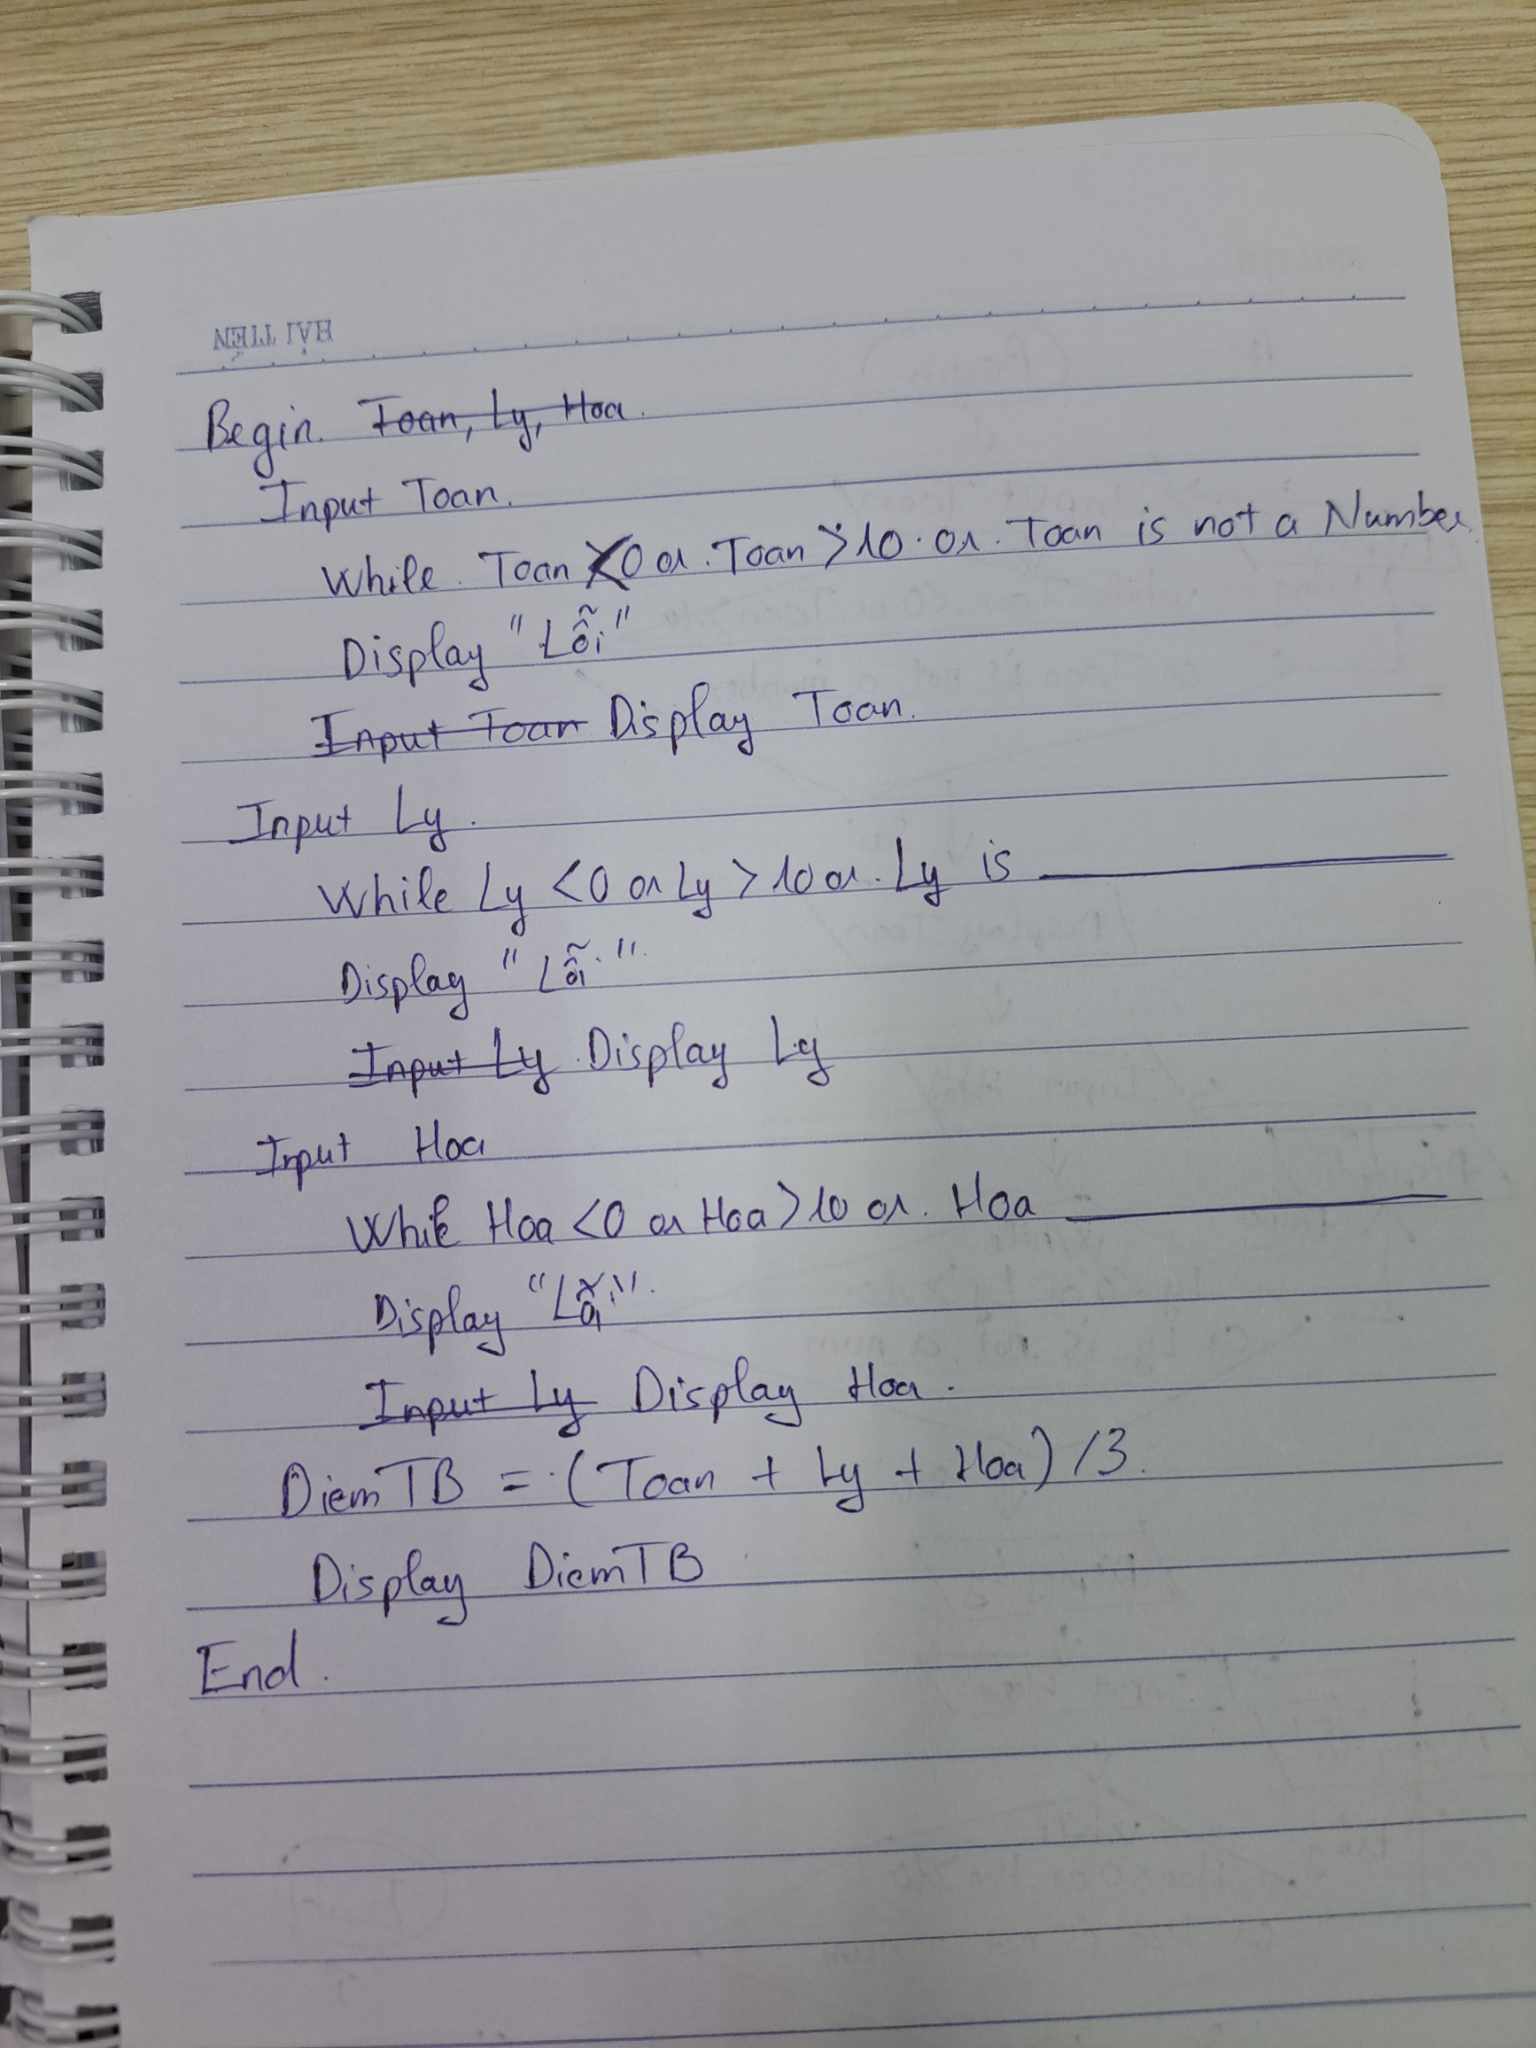 HẢI TIẾN
Begin. Toan, Ly, Hoa.
Input Toan.
While. Toan <0 or. Toan >10. or. Toan is not a Number.
Display "Lỗi"
Input Toan Display Toan.
Input Ly.
While Ly <0 or Ly >10 or. Ly is
Display "Lỗi."
Input Ly. Display Ly
Input Hoa
While Hoa <0 or Hoa >10 or. Hoa
Display "Lỗi".
Input Ly Display Hoa.
DiemTB = (Toan + Ly + Hoa) /3.
Display DiemTB
End.